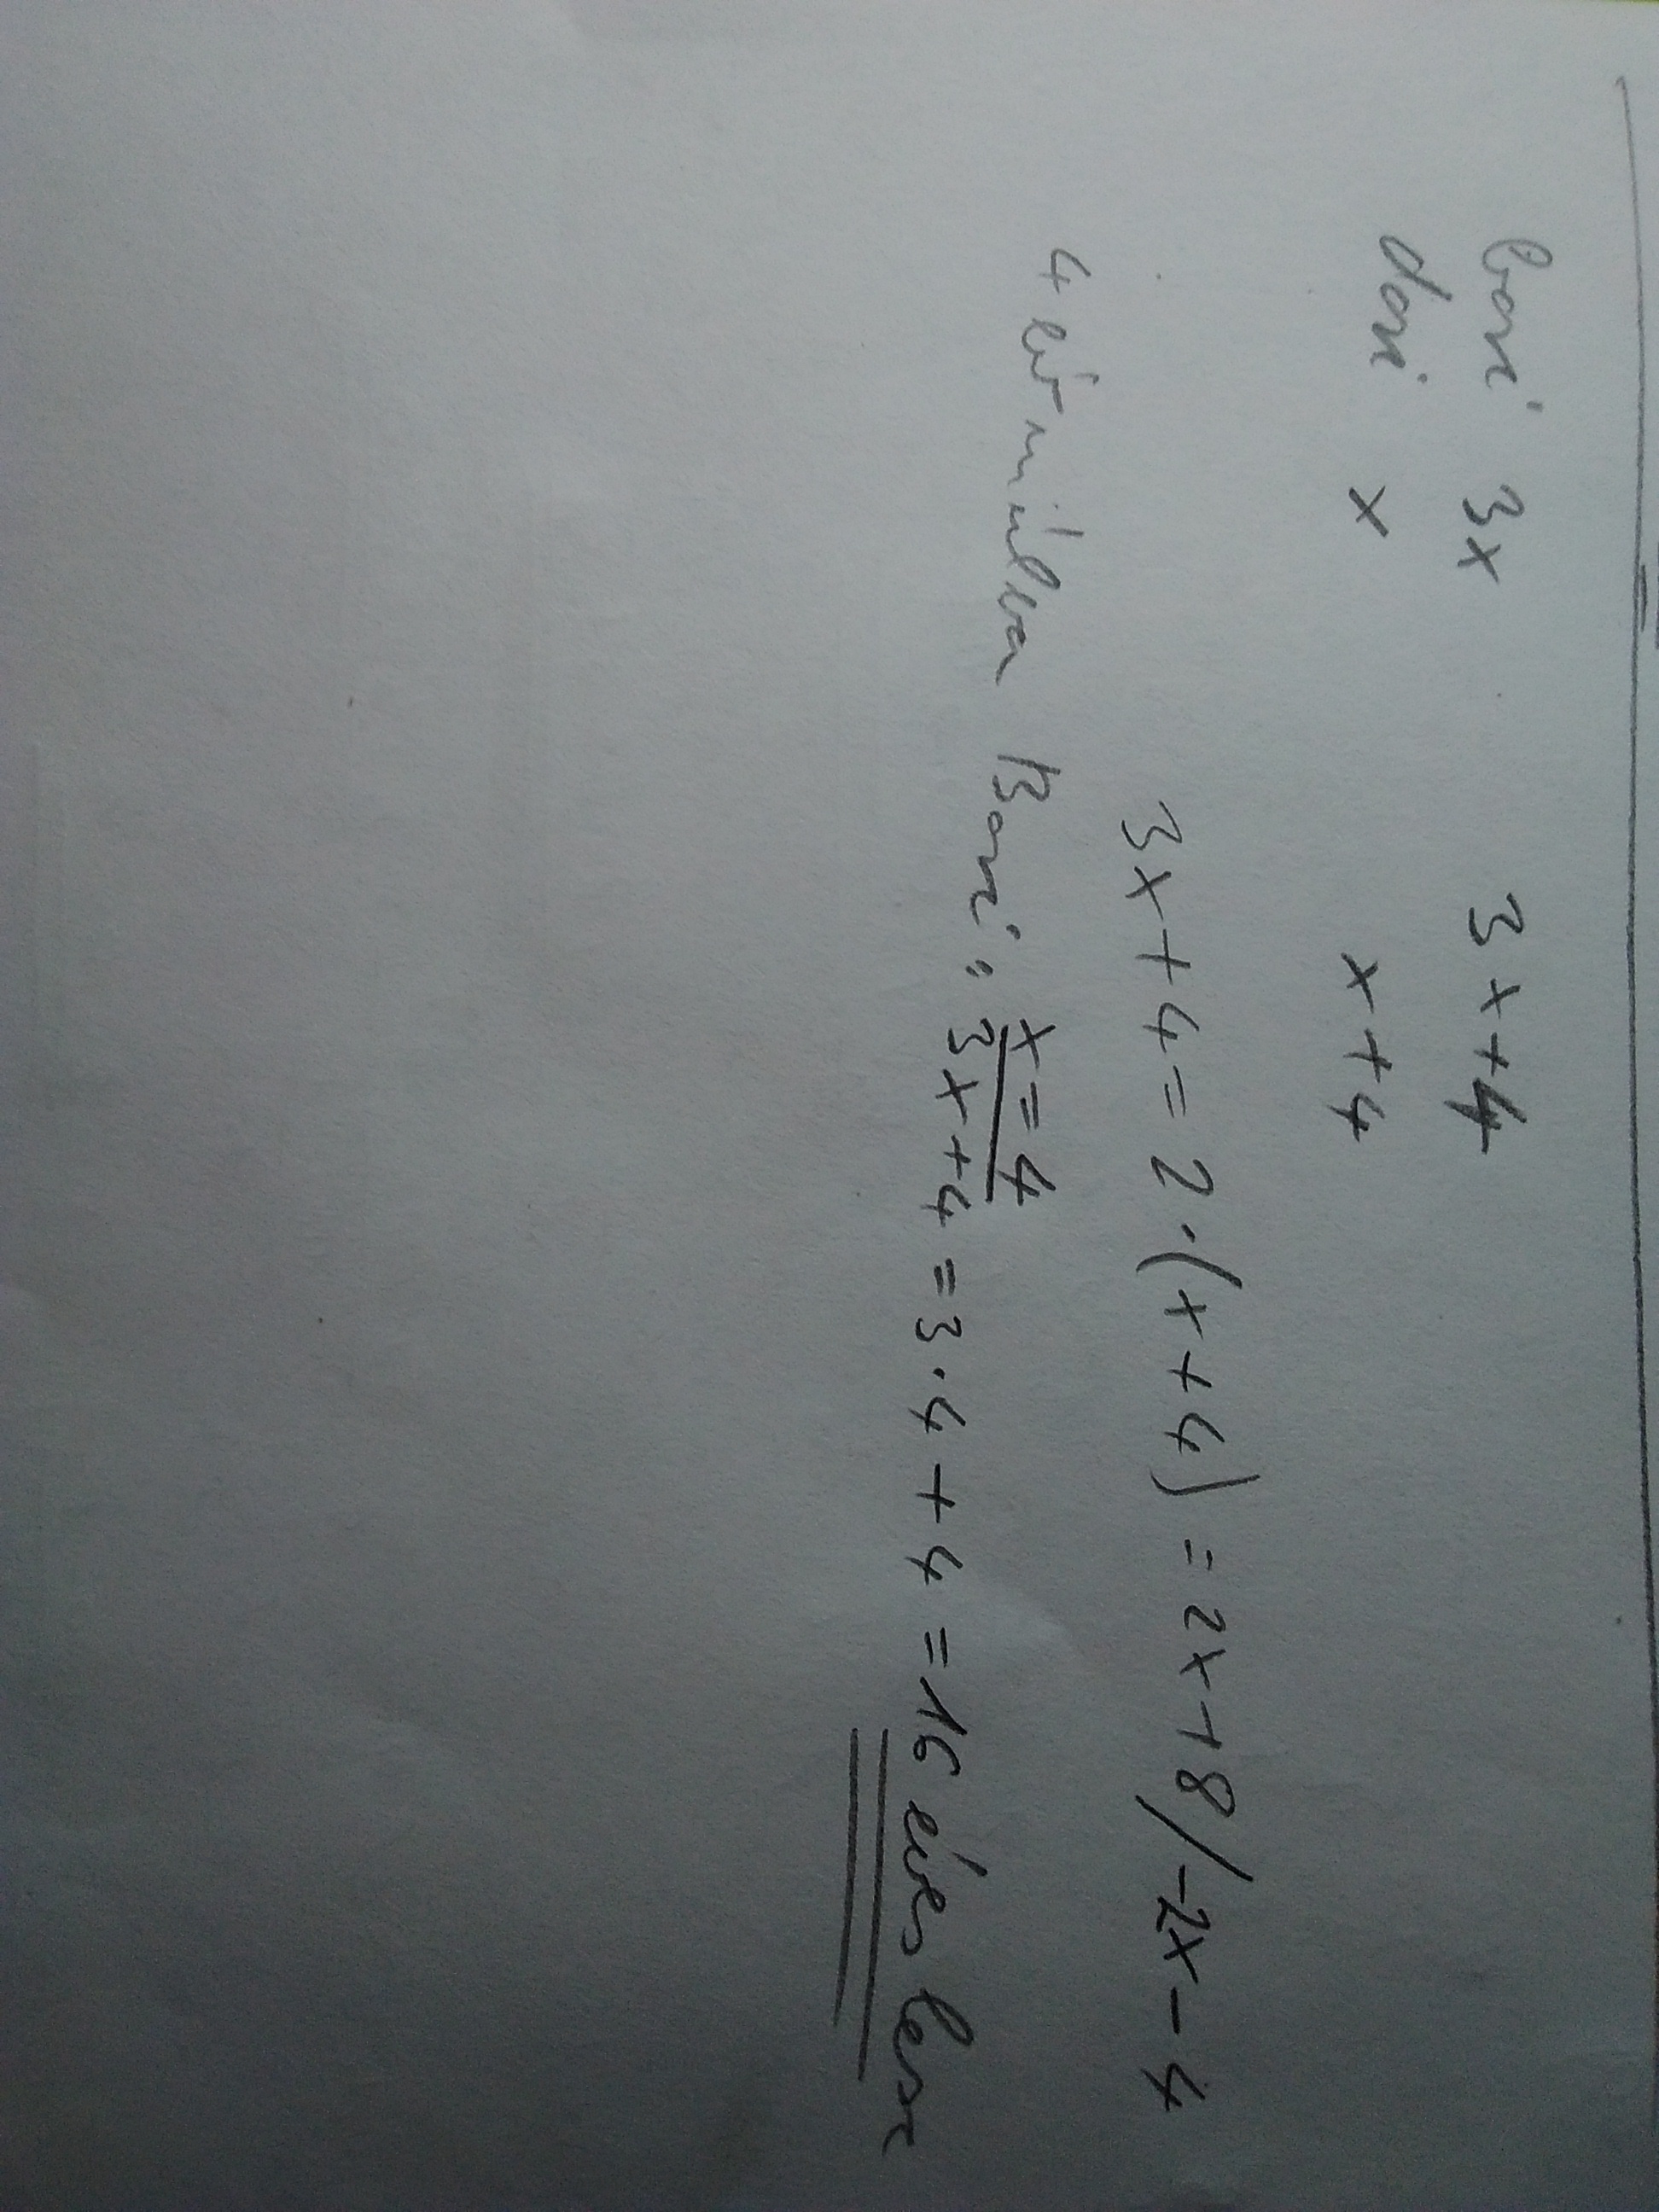 bori 3x 3x+4
dori x x+4
3x+4=2·(x+4)=2x+8/-2x-4
x=4
4 év múlva Bori: 3x+4=3·4+4=16 éves lesz